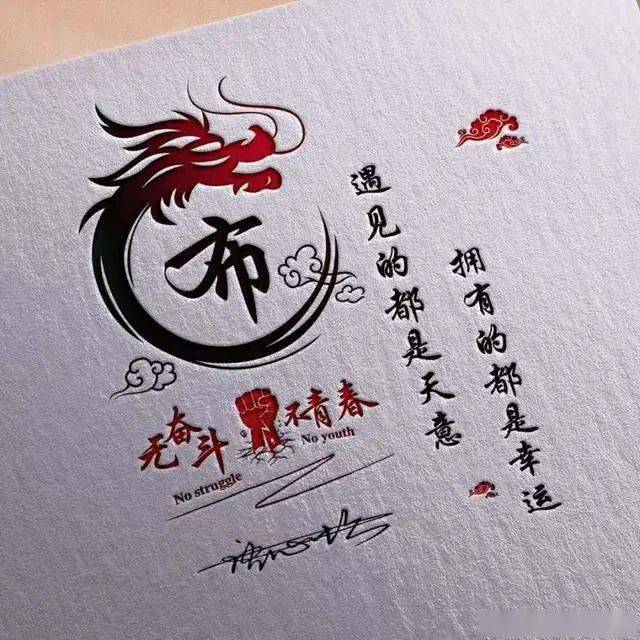 布
遇见的都是天意
拥有的都是幸运
无奋斗 不青春
No struggle No youth